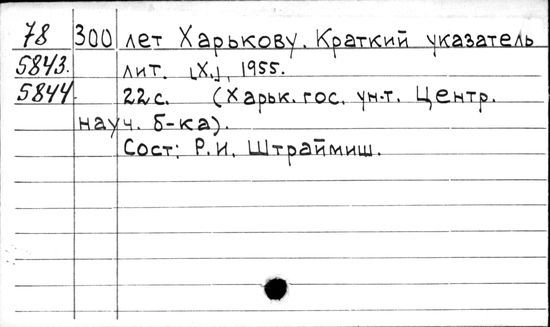 78 300 лет Харькову. Краткий указатель
5843. лит. [Х.], 1955.
5844. 22 с. (Харьк. гос. ун-т. Центр.
науч. б-ка).
Сост: Р.И. Штраймиш.